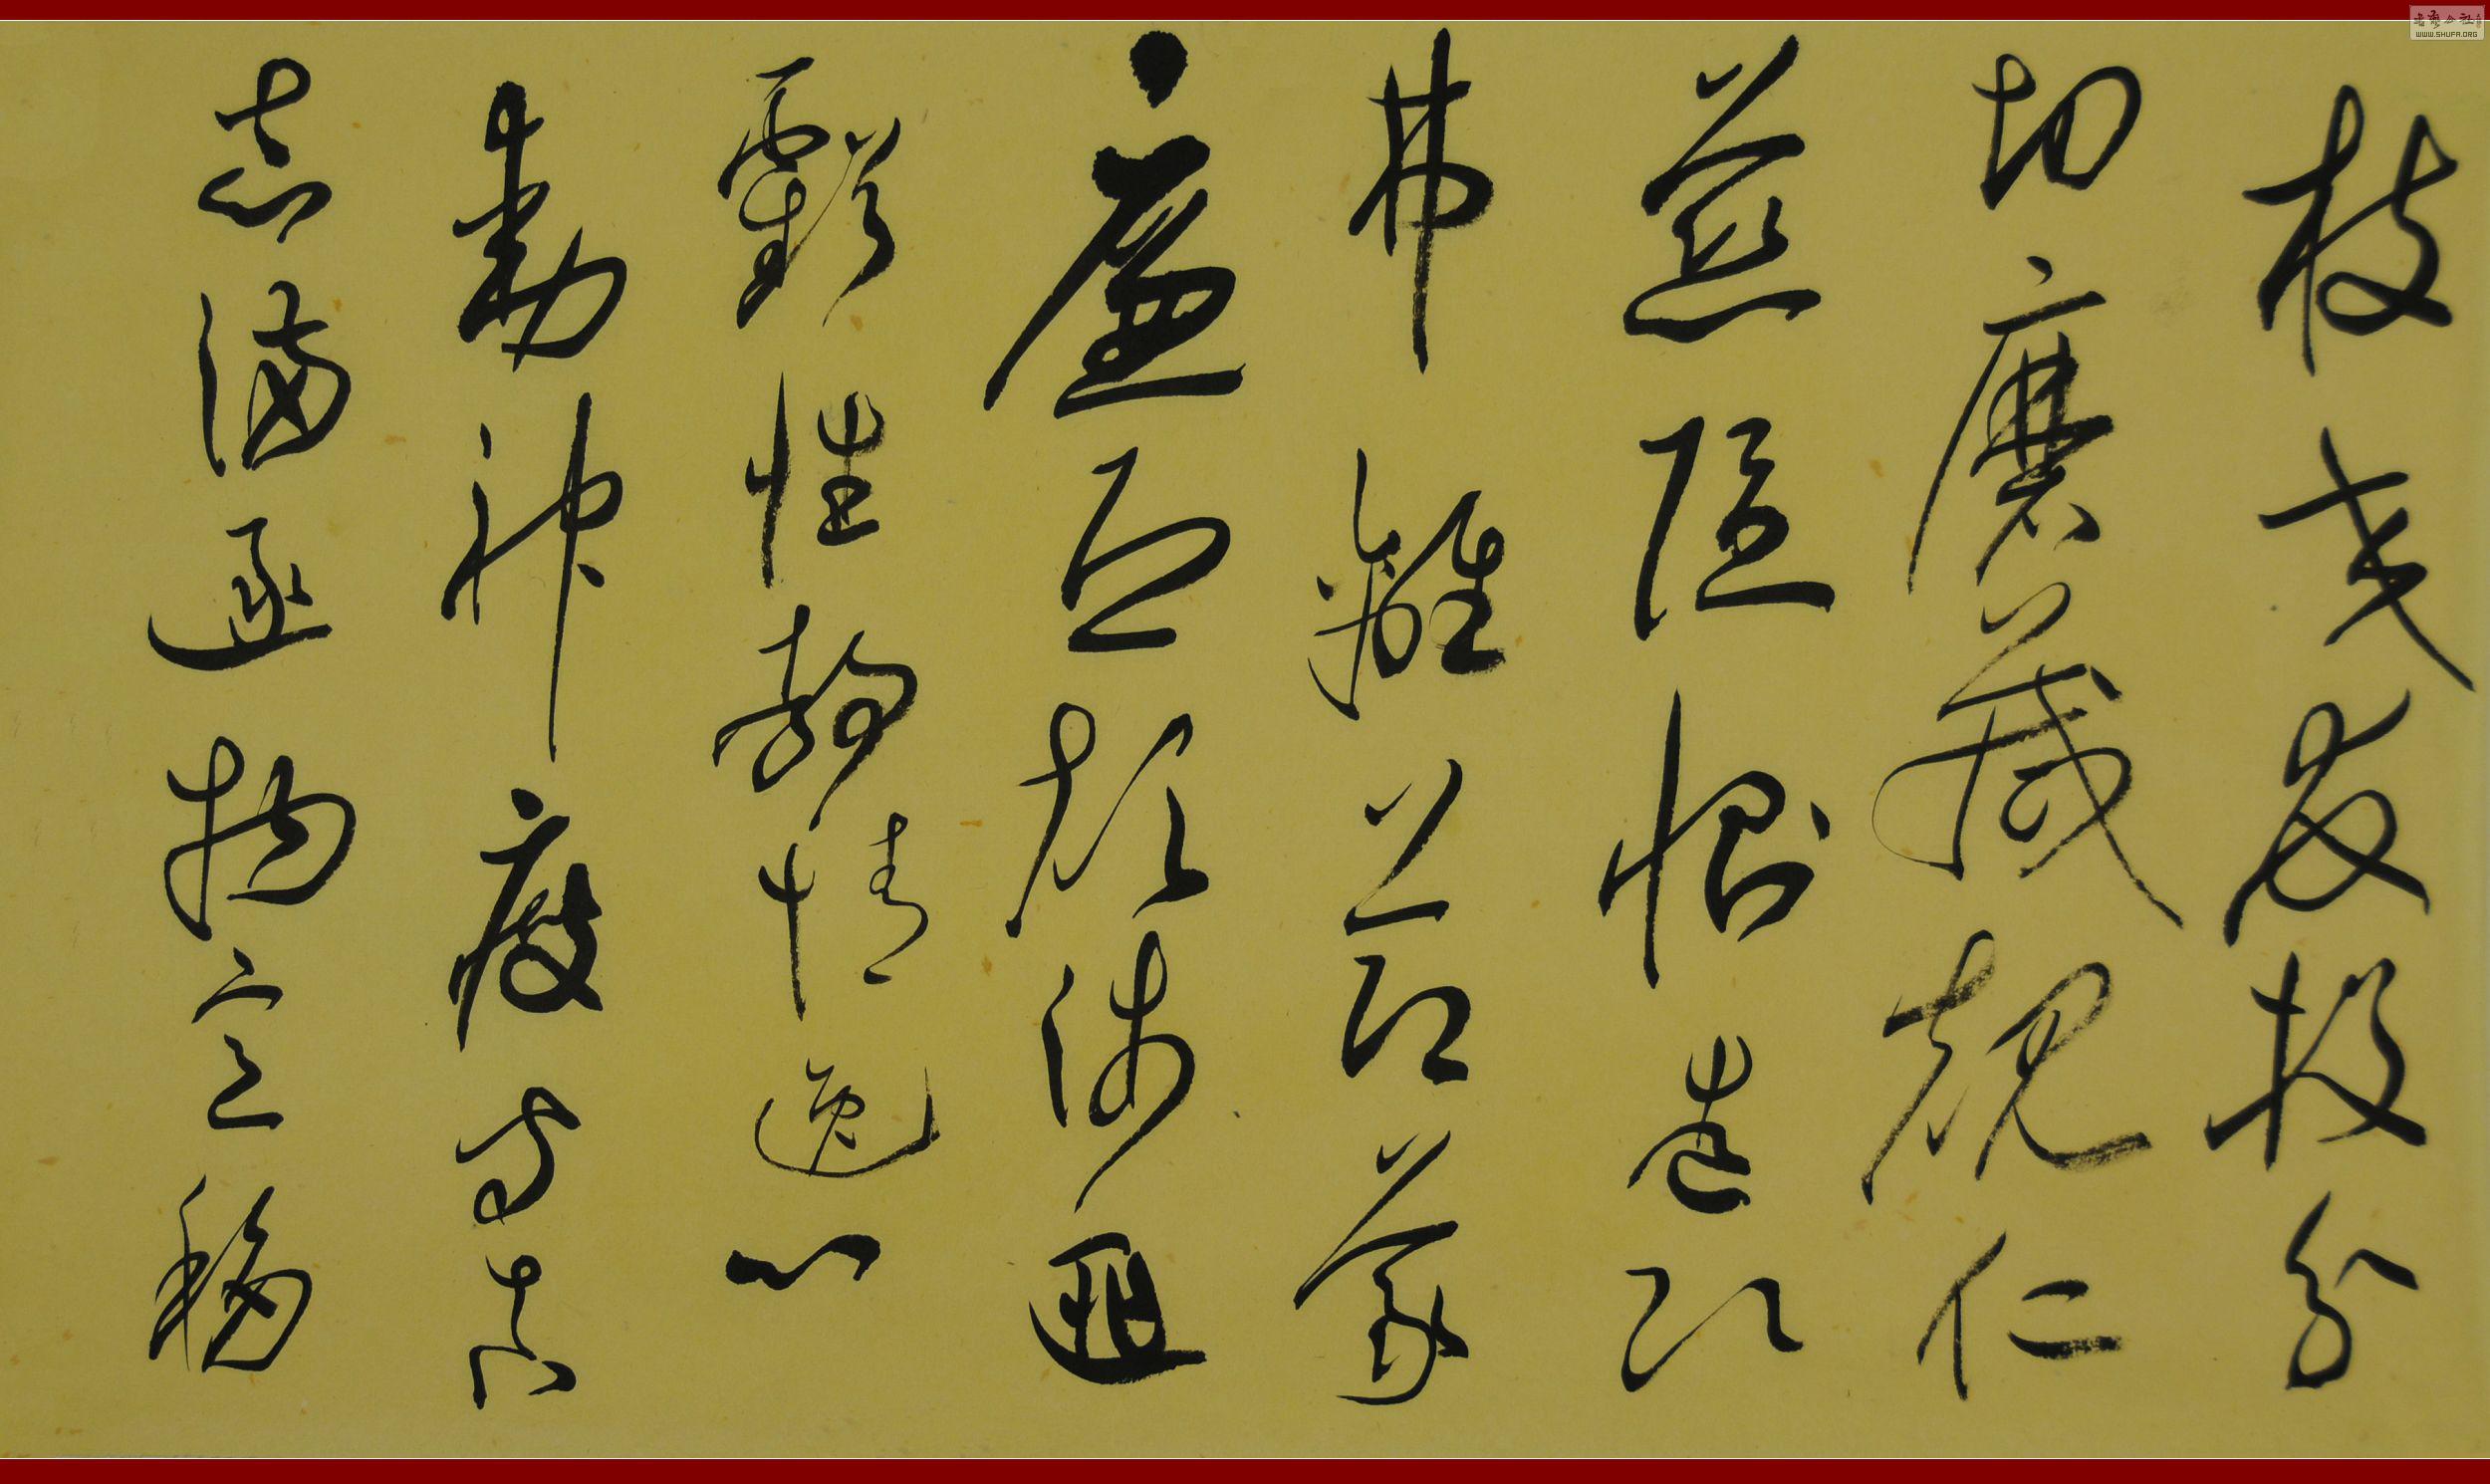 枝交友投分
切磨箴規仁
慈隱惻造次
弗離節義
廉退顛沛匪
虧性靜情逸心
動神疲守真
志滿逐物意移
書藝公社
WWW.SHUFA.ORG